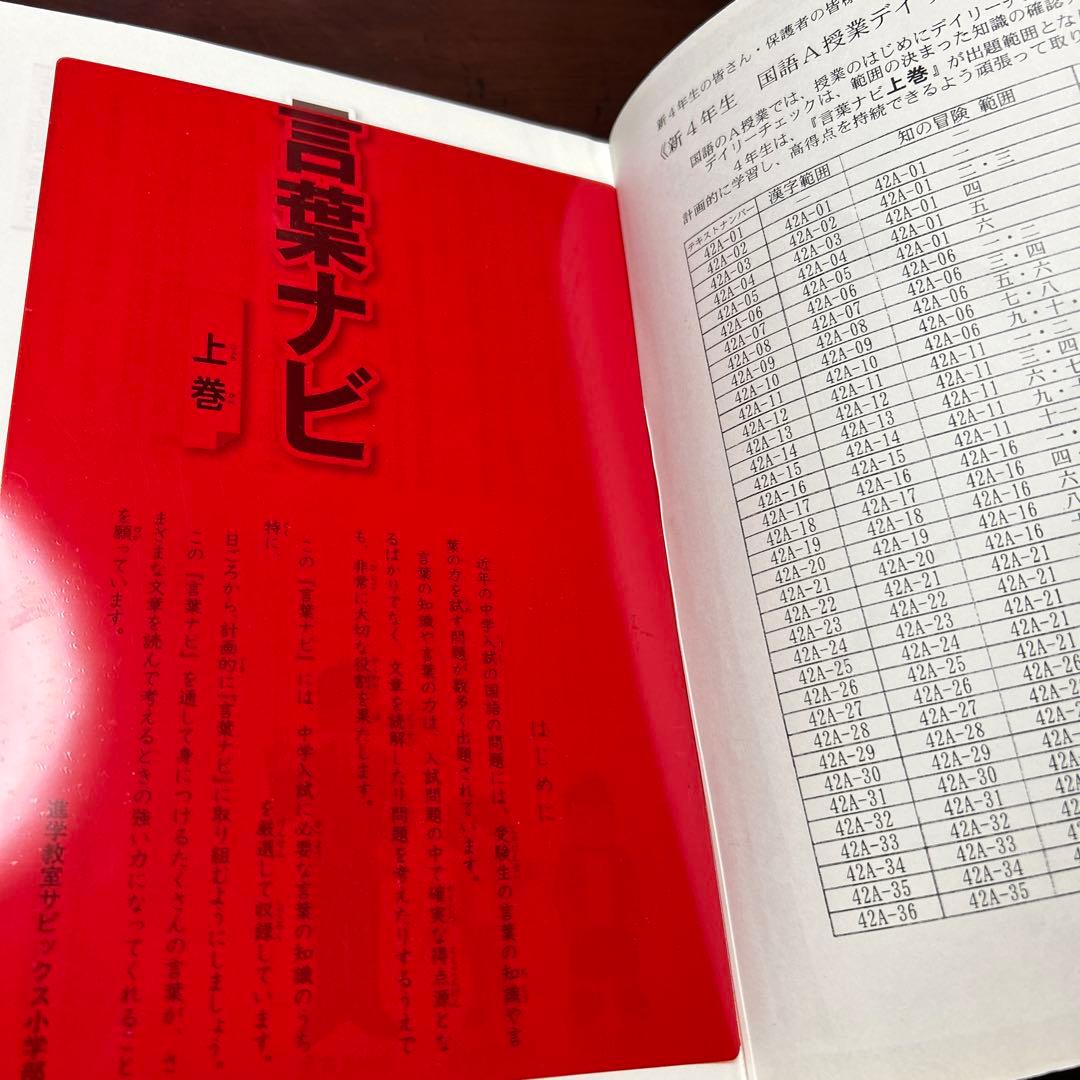 言葉ナビ
上巻
はじめに
近年の中学入試の国語の問題には、受験生の言葉の知識や言
葉の力を試す問題が数多く出題されています。
言葉の知識や言葉の力は、入試問題の中で確実な得点源とな
るばかりでなく、文章を読解したり問題を考えたりするうえで
も、非常に大切な役割を果たします。
この『言葉ナビ』には、中学入試に必要な言葉の知識のうち、
特に、 を厳選して収録しています。
日ごろから、計画的に『言葉ナビ』に取り組むようにしましょう。
この『言葉ナビ』を通して身につけるたくさんの言葉が、さ
まざまな文章を読んで考えるときの強い力になってくれること
を願っています。
進学教室サピックス小学部
新4年生の皆さん・保護者の皆様
《新4年生 国語A授業デイ
国語のA授業では、授業のはじめにデイリーチ
デイリーチェックは、範囲の決まった知識の確認テ
4年生は、『言葉ナビ上巻』が出題範囲とな
計画的に学習し、高得点を持続できるよう頑張って取り
テキストナンバー 漢字範囲 知の冒険 範囲
42A-01 一 二
42A-02 42A-01 42A-01 二・三
42A-03 42A-02 42A-01 四
42A-04 42A-03 42A-01 五
42A-05 42A-04 42A-01 六
42A-06 42A-05 42A-06 一・二
42A-07 42A-06 42A-06 三・四
42A-08 42A-07 42A-06 五・六
42A-09 42A-08 42A-06 七・八
42A-10 42A-09 42A-06 九・十
42A-11 42A-10 42A-11
42A-12 42A-11 42A-11
42A-13 42A-12 42A-11
42A-14 42A-13 42A-11
42A-15 42A-14 42A-11
42A-16 42A-15 42A-16
42A-17 42A-16 42A-16
42A-18 42A-17 42A-16
42A-19 42A-18 42A-16
42A-20 42A-19 42A-16
42A-21 42A-20 42A-21
42A-22 42A-21 42A-21
42A-23 42A-22 42A-21
42A-24 42A-23 42A-21
42A-25 42A-24 42A-21
42A-26 42A-25
42A-27 42A-26
42A-28 42A-27
42A-29 42A-28
42A-30 42A-29
42A-31 42A-30
42A-32 42A-31
42A-33 42A-32
42A-34 42A-33
42A-35 42A-34
42A-36 42A-35